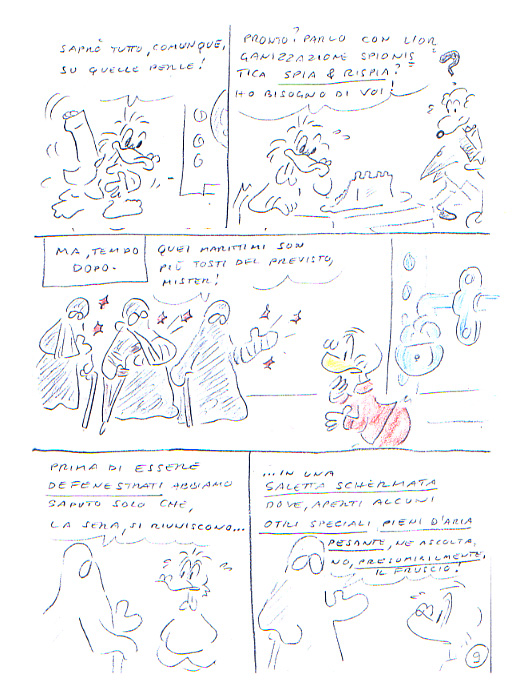 SAPRÒ TUTTO, COMUNQUE,
SU QUELLE PERLE!
PRONTO? PARLO CON L'OR
GANIZZAZIONE SPIONIS
TICA SPIA & RISPIA?
HO BISOGNO DI VOI!
?
MA, TEMPO
DOPO.
QUEI MARITTIMI SON
PIÙ TOSTI DEL PREVISTO,
MISTER!
PRIMA DI ESSERE
DEFENESTRATI ABBIAMO
SAPUTO SOLO CHE,
LA SERA, SI RIUNISCONO...
...IN UNA
SALETTA SCHERMATA
DOVE, APERTI ALCUNI
OTRI SPECIALI PIENI D'ARIA
PESANTE, NE ASCOLTA
NO, PRESUMIBILMENTE,
IL FRUSCIO!
9